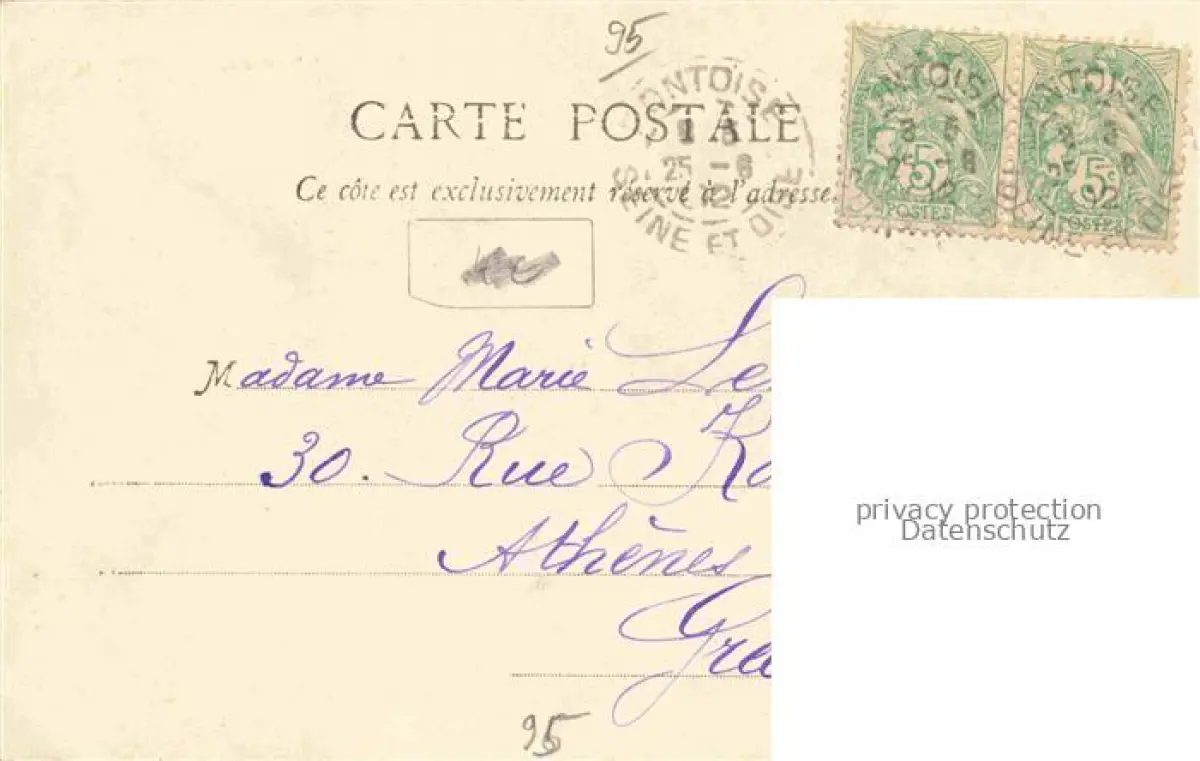 95
CARTE POSTALE
Ce côte est exclusivement réservé à l'adresse.
PONTOISE
25 -6
02
SEINE ET OISE
5c
POSTES
5c
POSTES
Madame Marie Le
30. Rue
Athènes
privacy protection
Datenschutz
95